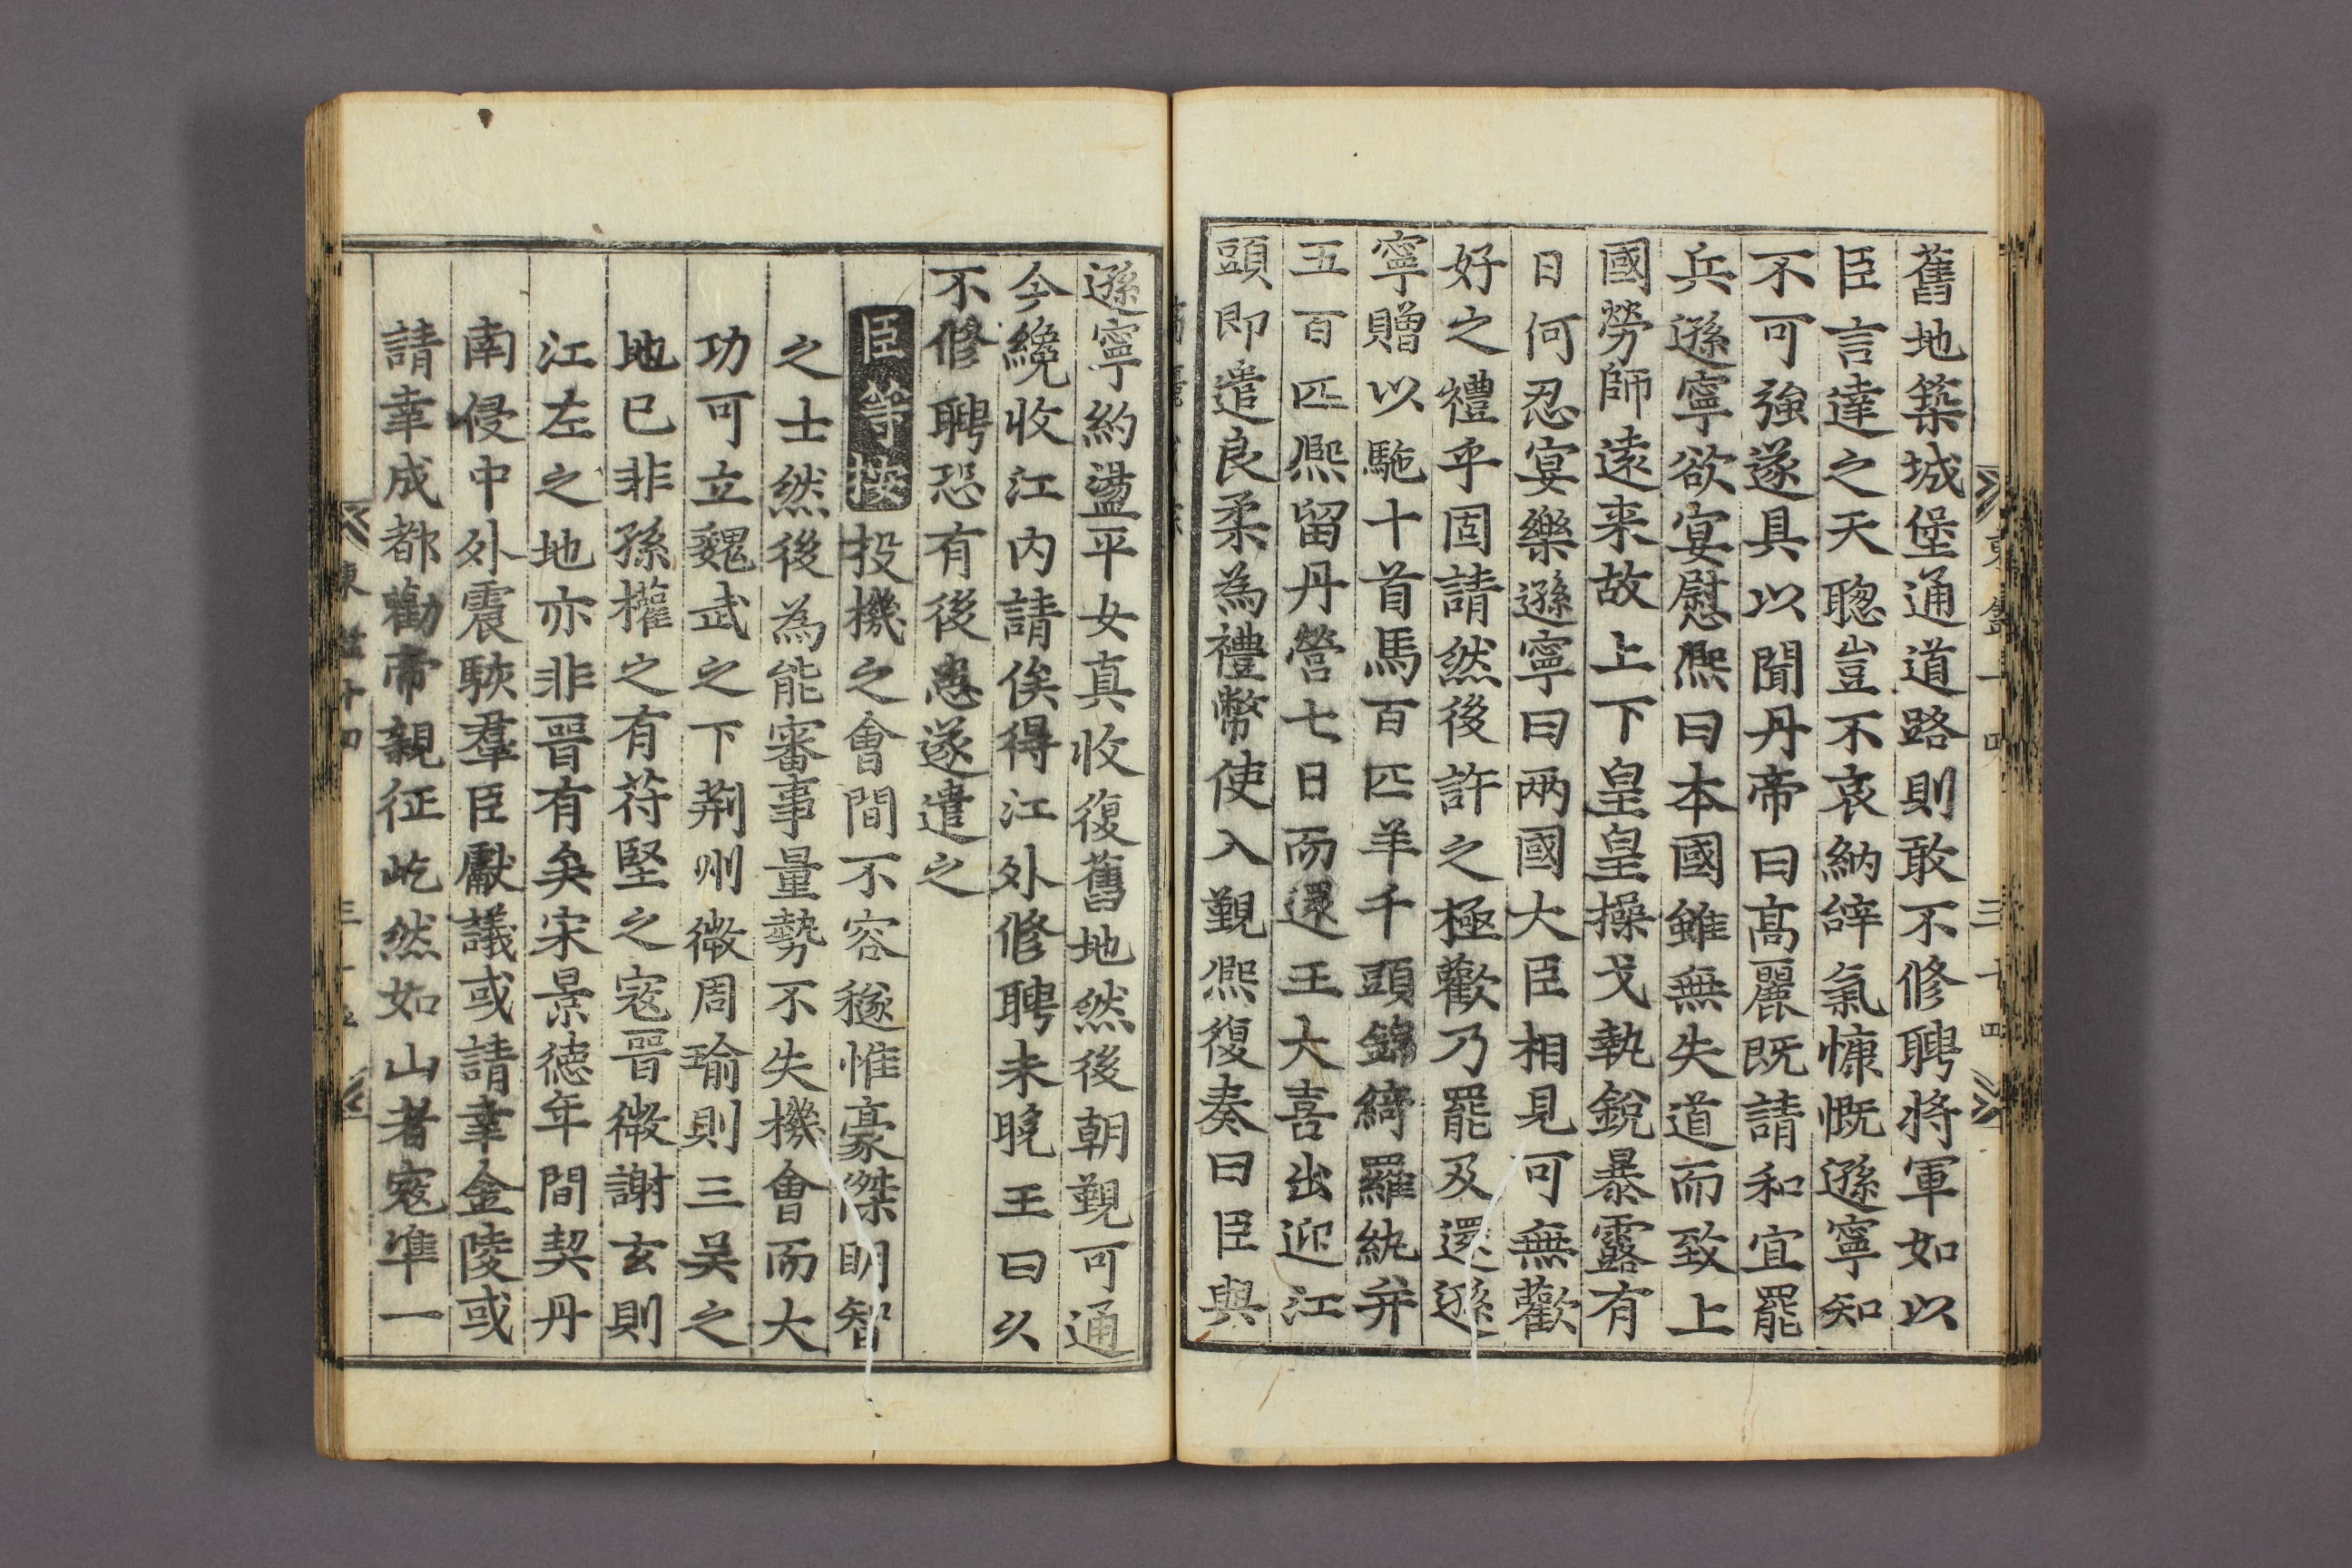 舊地築城堡通道路則敢不修聘將軍如以
臣言達之天聦豈不哀納辝氣慷慨遜寧知
不可強遂具以聞丹帝曰髙麗既請和宜罷
兵遜寧欲宴慰熈曰本國雖無失道而致上
國勞師遠来故上下皇皇操戈執銳暴露有
日何忍宴樂遜寧曰兩國大臣相見可無歡
好之禮乎固請然後許之極歡乃罷及還遜
寧贈以駞十首馬百匹羊千頭錦綺羅紈并
五百匹熈留丹營七日而還王大喜出迎江
頭即遣良柔為禮幣使入覲熈復奏曰臣與
遜寧約盪平女真收復舊地然後朝覲可通
今纔收江內請俟得江外修聘未晚王曰久
不修聘恐有後患遂遣之
臣等按投機之會間不容穟惟豪傑明智
之士然後為能審事量勢不失機會而大
功可立魏武之下荆州微周瑜則三吴之
地已非孫權之有苻堅之寇晉微謝玄則
江左之地亦非晉有矣宋景德年間契丹
南侵中外震駭羣臣獻議或請幸金陵或
請幸成都勸帝親征屹然如山者寇準一
東 十四